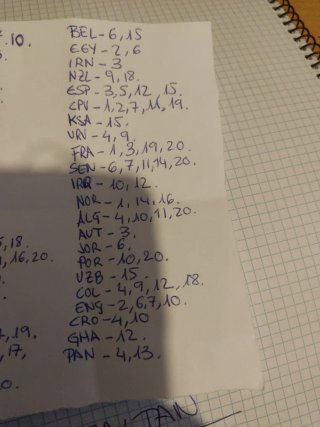 7.10.
BEL-6,15
EGY-2,6
IRN-3
NZL-9,18.
ESP-3,5,12,15.
CPV-1,2,7,11,19.
KSA-15.
URV-4,9.
FRA-1,3,19,20.
SEN-6,7,11,14,20.
IRQ-10,12.
NOR-1,14,16.
ALG-4,10,11,20.
AUT-3.
JOR-6.
POR-10,20.
UZB-15.
COL-4,9,12,18.
ENG-2,6,7,10.
CRO-4,10
GHA-12.
PAN-4,13.
,18.
,16,20.
,19.
,17,